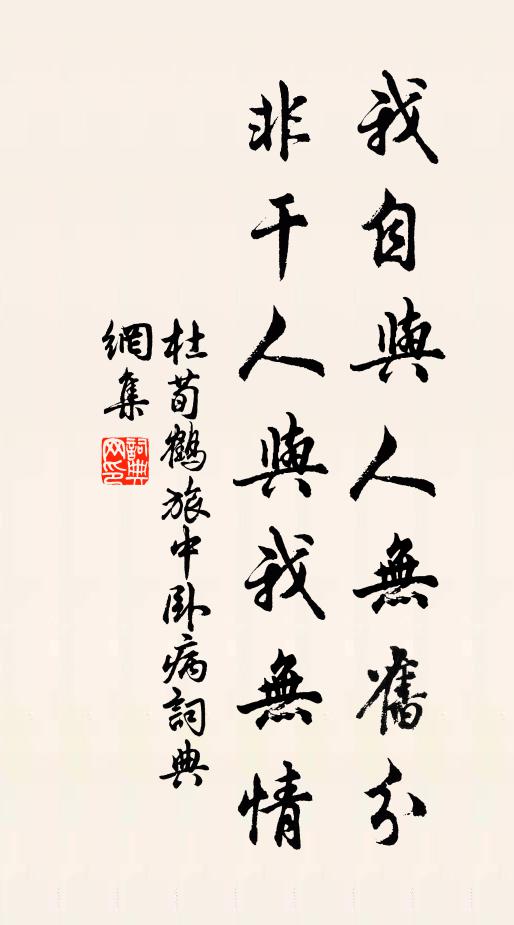 我自與人無舊分
非干人與我無情
杜荀鶴旅中臥病詞典
網集
詞典網印